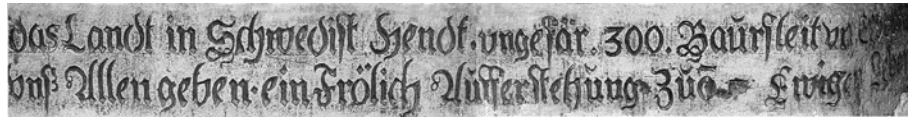 das Landt in Schwedist Hendt. vngefär. 300. Baursleit vn
vnß Allen geben. ein Frölich Aufferstehung Zuo Ewigen